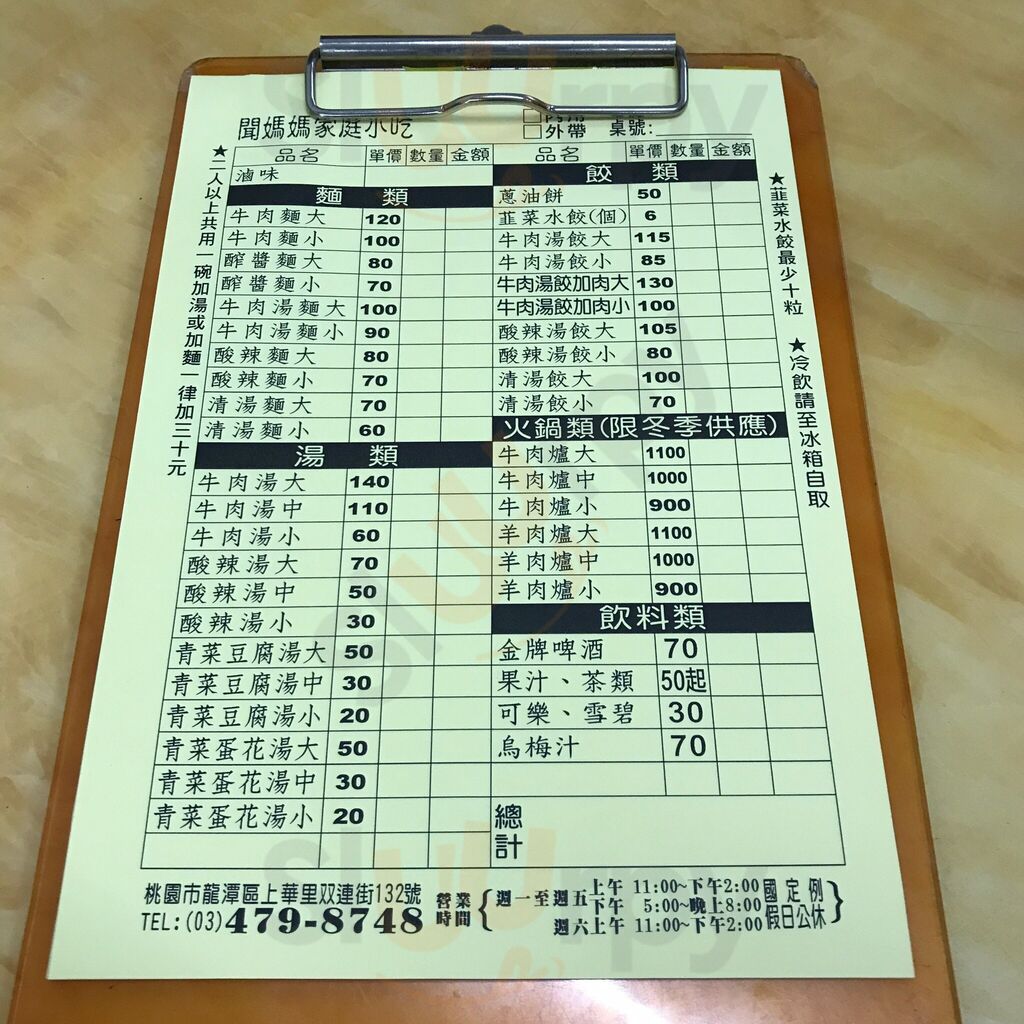 聞媽媽家庭小吃
外帶 桌號:
品名 單價 數量 金額
滷味
麵 類
牛肉麵大 120
牛肉麵小 100
醡醬麵大 80
醡醬麵小 70
牛肉湯麵大 100
牛肉湯麵小 90
酸辣麵大 80
酸辣麵小 70
清湯麵大 70
清湯麵小 60
湯 類
牛肉湯大 140
牛肉湯中 110
牛肉湯小 60
酸辣湯大 70
酸辣湯中 50
酸辣湯小 30
青菜豆腐湯大 50
青菜豆腐湯中 30
青菜豆腐湯小 20
青菜蛋花湯大 50
青菜蛋花湯中 30
青菜蛋花湯小 20
品名 單價 數量 金額
餃 類
蔥油餅 50
韮菜水餃(個) 6
牛肉湯餃大 115
牛肉湯餃小 85
牛肉湯餃加肉大 130
牛肉湯餃加肉小 100
酸辣湯餃大 105
酸辣湯餃小 80
清湯餃大 100
清湯餃小 70
火鍋類(限冬季供應)
牛肉爐大 1100
牛肉爐中 1000
牛肉爐小 900
羊肉爐大 1100
羊肉爐中 1000
羊肉爐小 900
飲料類
金牌啤酒 70
果汁、茶類 50起
可樂、雪碧 30
烏梅汁 70
總計
★二人以上共用一碗加湯或加麵一律加三十元
★韮菜水餃最少十粒
★冷飲請至冰箱自取
桃園市龍潭區上華里双連街132號
TEL:(03)479-8748
營業時間
週一至週五 上午 11:00~下午2:00
下午 5:00~晚上8:00
週六上午 11:00~下午2:00
國定例假日公休
slurrpy